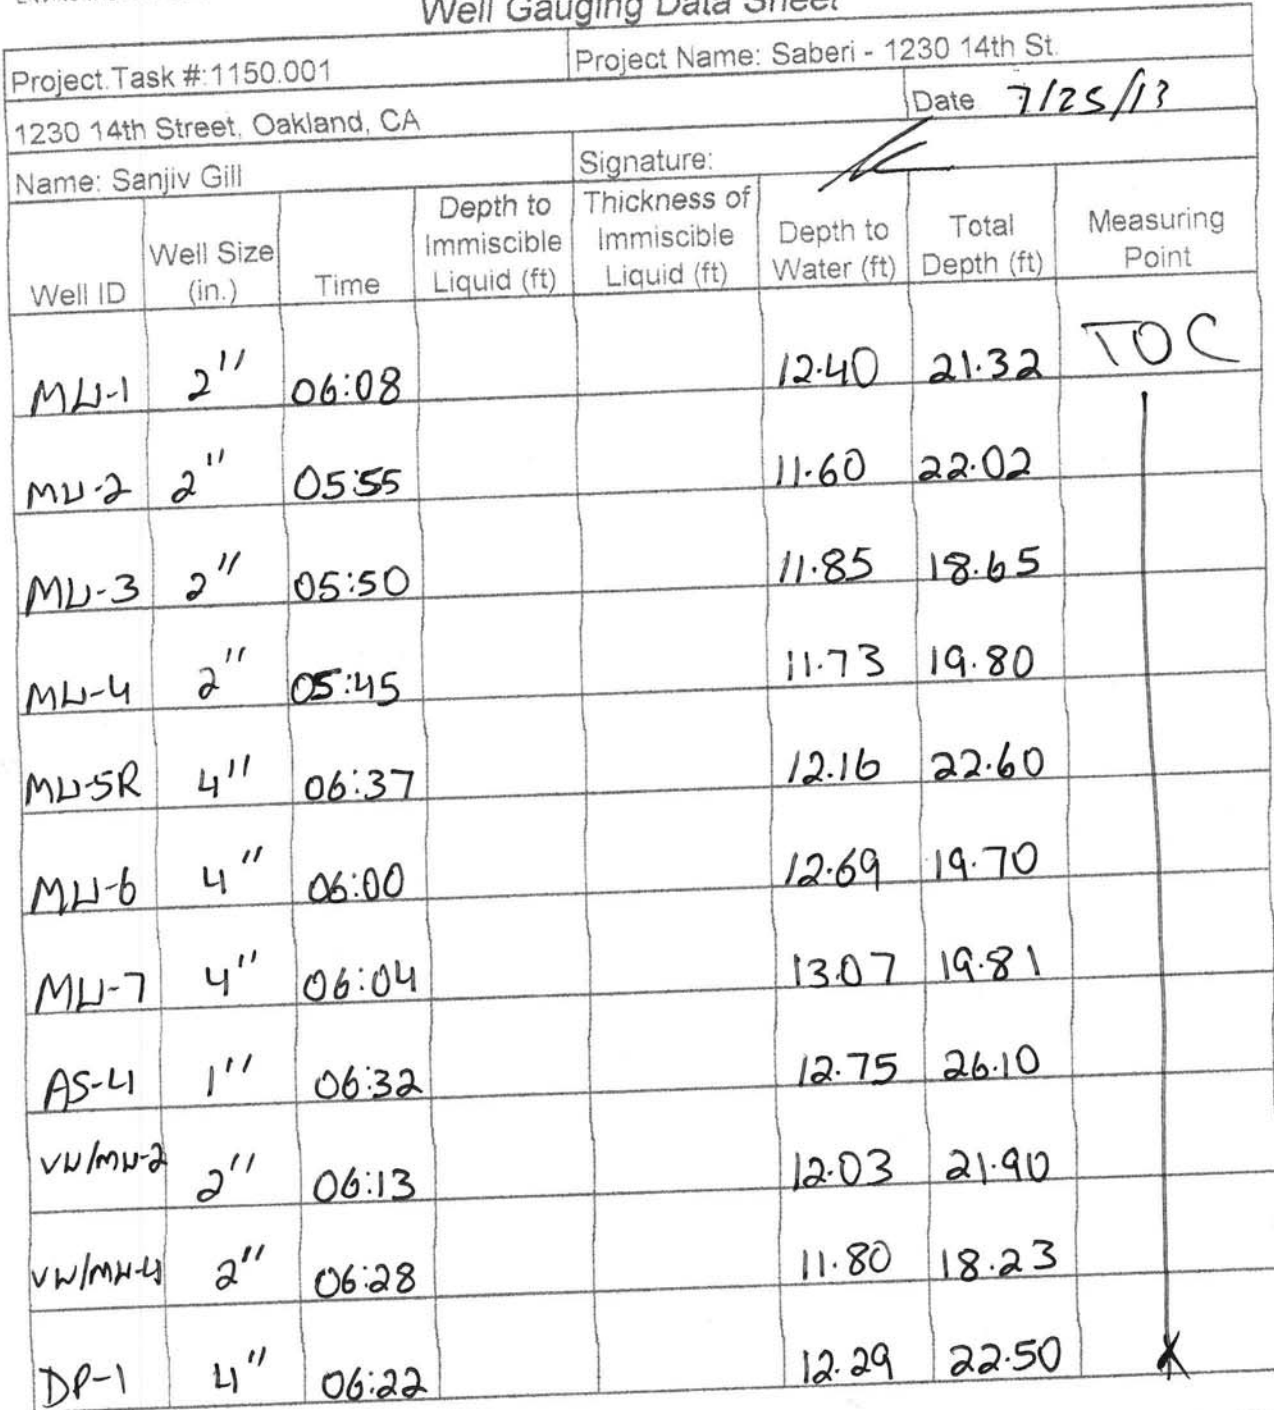 Well Gauging Data Sheet
Project.Task #:1150.001 Project Name: Saberi - 1230 14th St.
1230 14th Street, Oakland, CA Date 7/25/13
Name: Sanjiv Gill Signature:
Well ID Well Size (in.) Time Depth to Immiscible Liquid (ft) Thickness of Immiscible Liquid (ft) Depth to Water (ft) Total Depth (ft) Measuring Point
MW-1 2" 06:08 12.40 21.32 TOC
MW-2 2" 05:55 11.60 22.02
MW-3 2" 05:50 11.85 18.65
MW-4 2" 05:45 11.73 19.80
MW-5R 4" 06:37 12.16 22.60
MW-6 4" 06:00 12.69 19.70
MW-7 4" 06:04 13.07 19.81
AS-4 1" 06:32 12.75 26.10
VW/MW-2 2" 06:13 12.03 21.90
VW/MW-4 2" 06:28 11.80 18.23
DP-1 4" 06:22 12.29 22.50